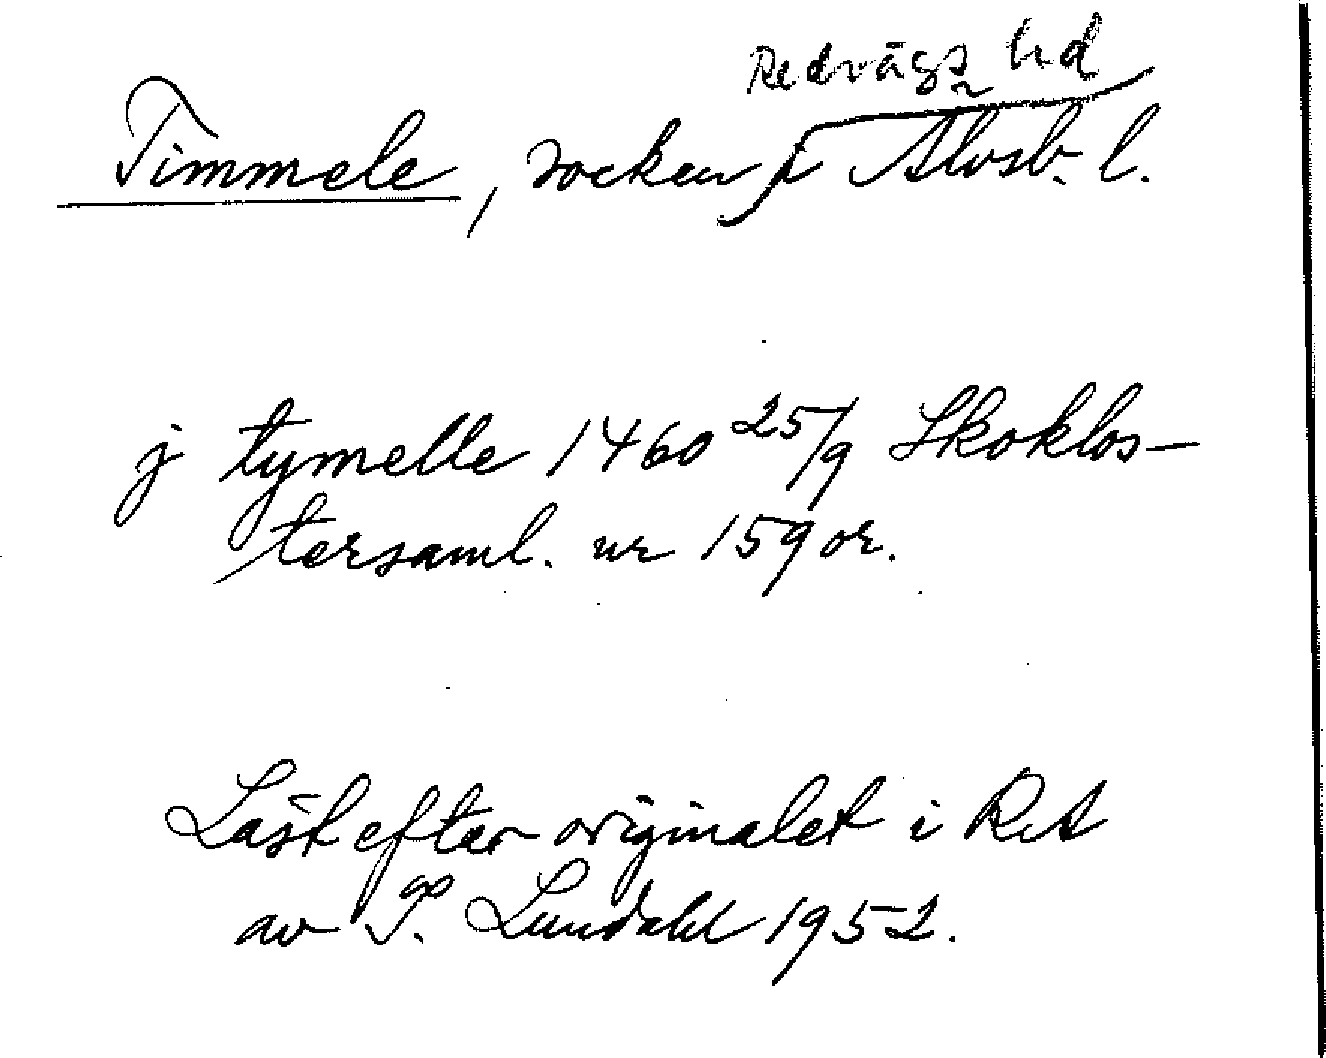 Redvägs hd
Timmele, socken i Älvsb. l.
j tymelle 1460 25/9 Skoklos-
tersaml. nr 159 or.
Läst efter originalet i RA
av I. Lundahl 1952.